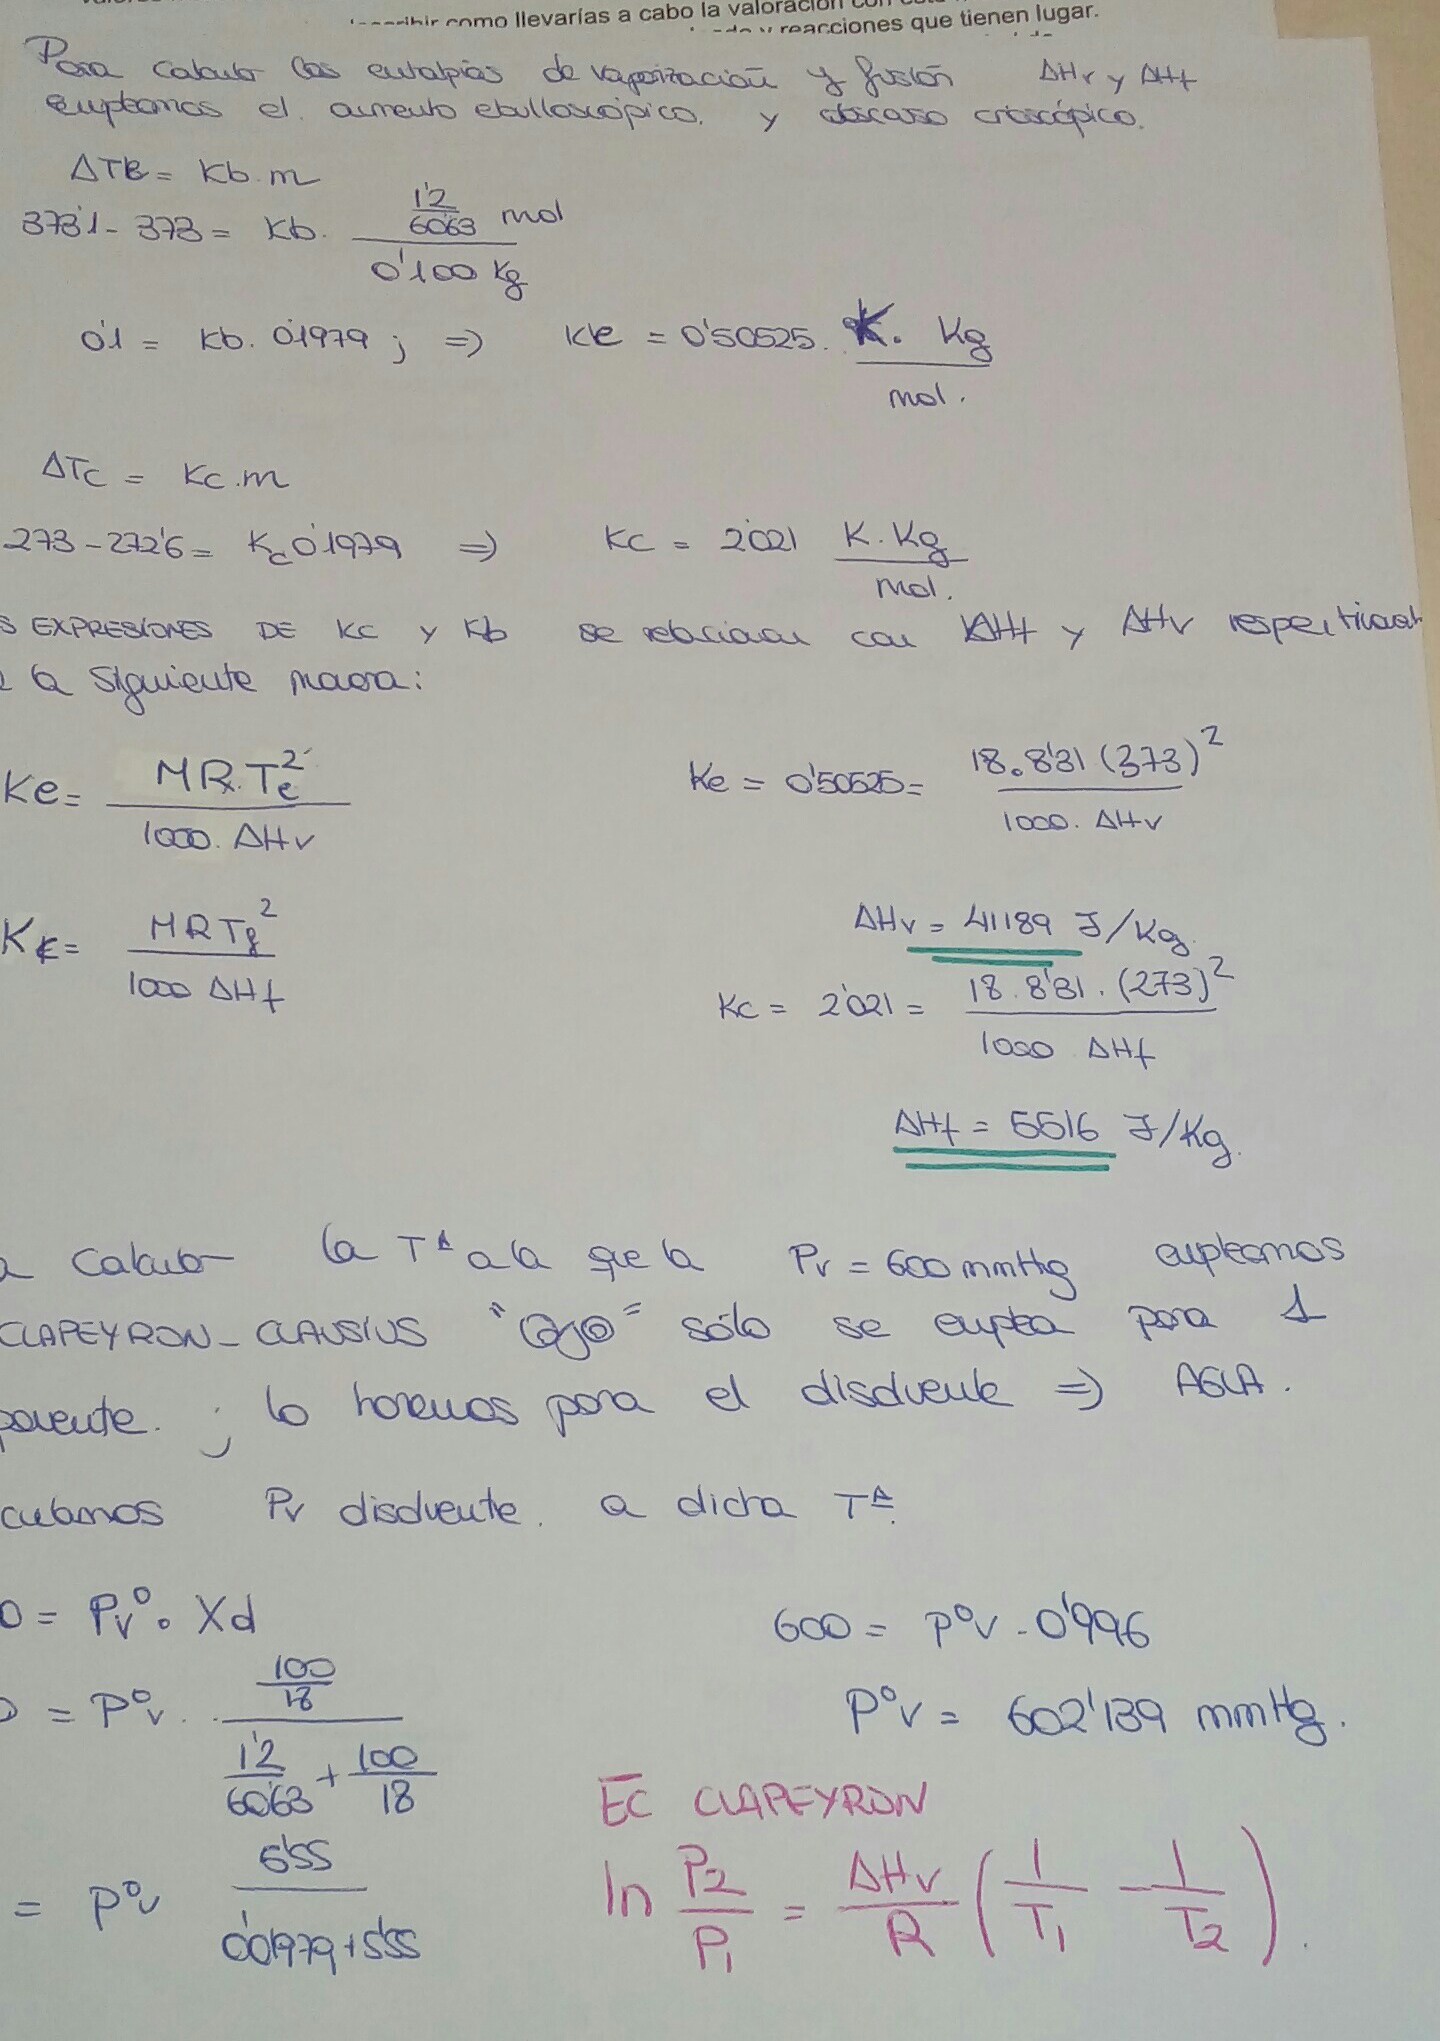 como llevarías a cabo la valoración con
y reacciones que tienen lugar.
Para calcular las entalpías de vaporización y fusión ΔHv y ΔHf
empleamos el aumento ebulloscópico. y descenso crioscópico.
ΔTB = Kb.m
373'1 - 373 = Kb. (1'2/60'63 mol)/(0'100 Kg)
0'1 = Kb. 0'1979 ; => Ke = 0'50525. K. Kg/mol.
ΔTc = Kc.m
273 - 272'6 = Kc 0'1979 => Kc = 2'021 K.Kg/mol.
S EXPRESIONES DE Kc y Kb se relacionan con ΔHf y ΔHv respectivament
la siguiente manera:
Ke = MR.Te²/1000. ΔHv
Ke = 0'50525 = 18.8'31 (373)²/1000. ΔHv
ΔHv = 41189 J/Kg.
Kc = MRTf²/1000 ΔHf
Kc = 2'021 = 18.8'31.(273)²/1000 ΔHf
ΔHf = 5516 J/Kg.
a calcular la Tª a la que la Pv = 600 mmHg empleamos
CLAPEYRON - CLAUSIUS "Ojo" sólo se emplea para 1
ponente. ; lo haremos para el disolvente => AGUA.
culamos Pv disolvente. a dicha Tª.
0 = Pv°. Xd
600 = P°v . 0'996
0 = P°v . (100/18)/(1'2/60'63 + 100/18)
P°v = 602'139 mmHg.
= P°v 5'55/(0'01979+5'55)
EC CLAPEYRON
ln P2/P1 = ΔHv/R (1/T1 - 1/T2).